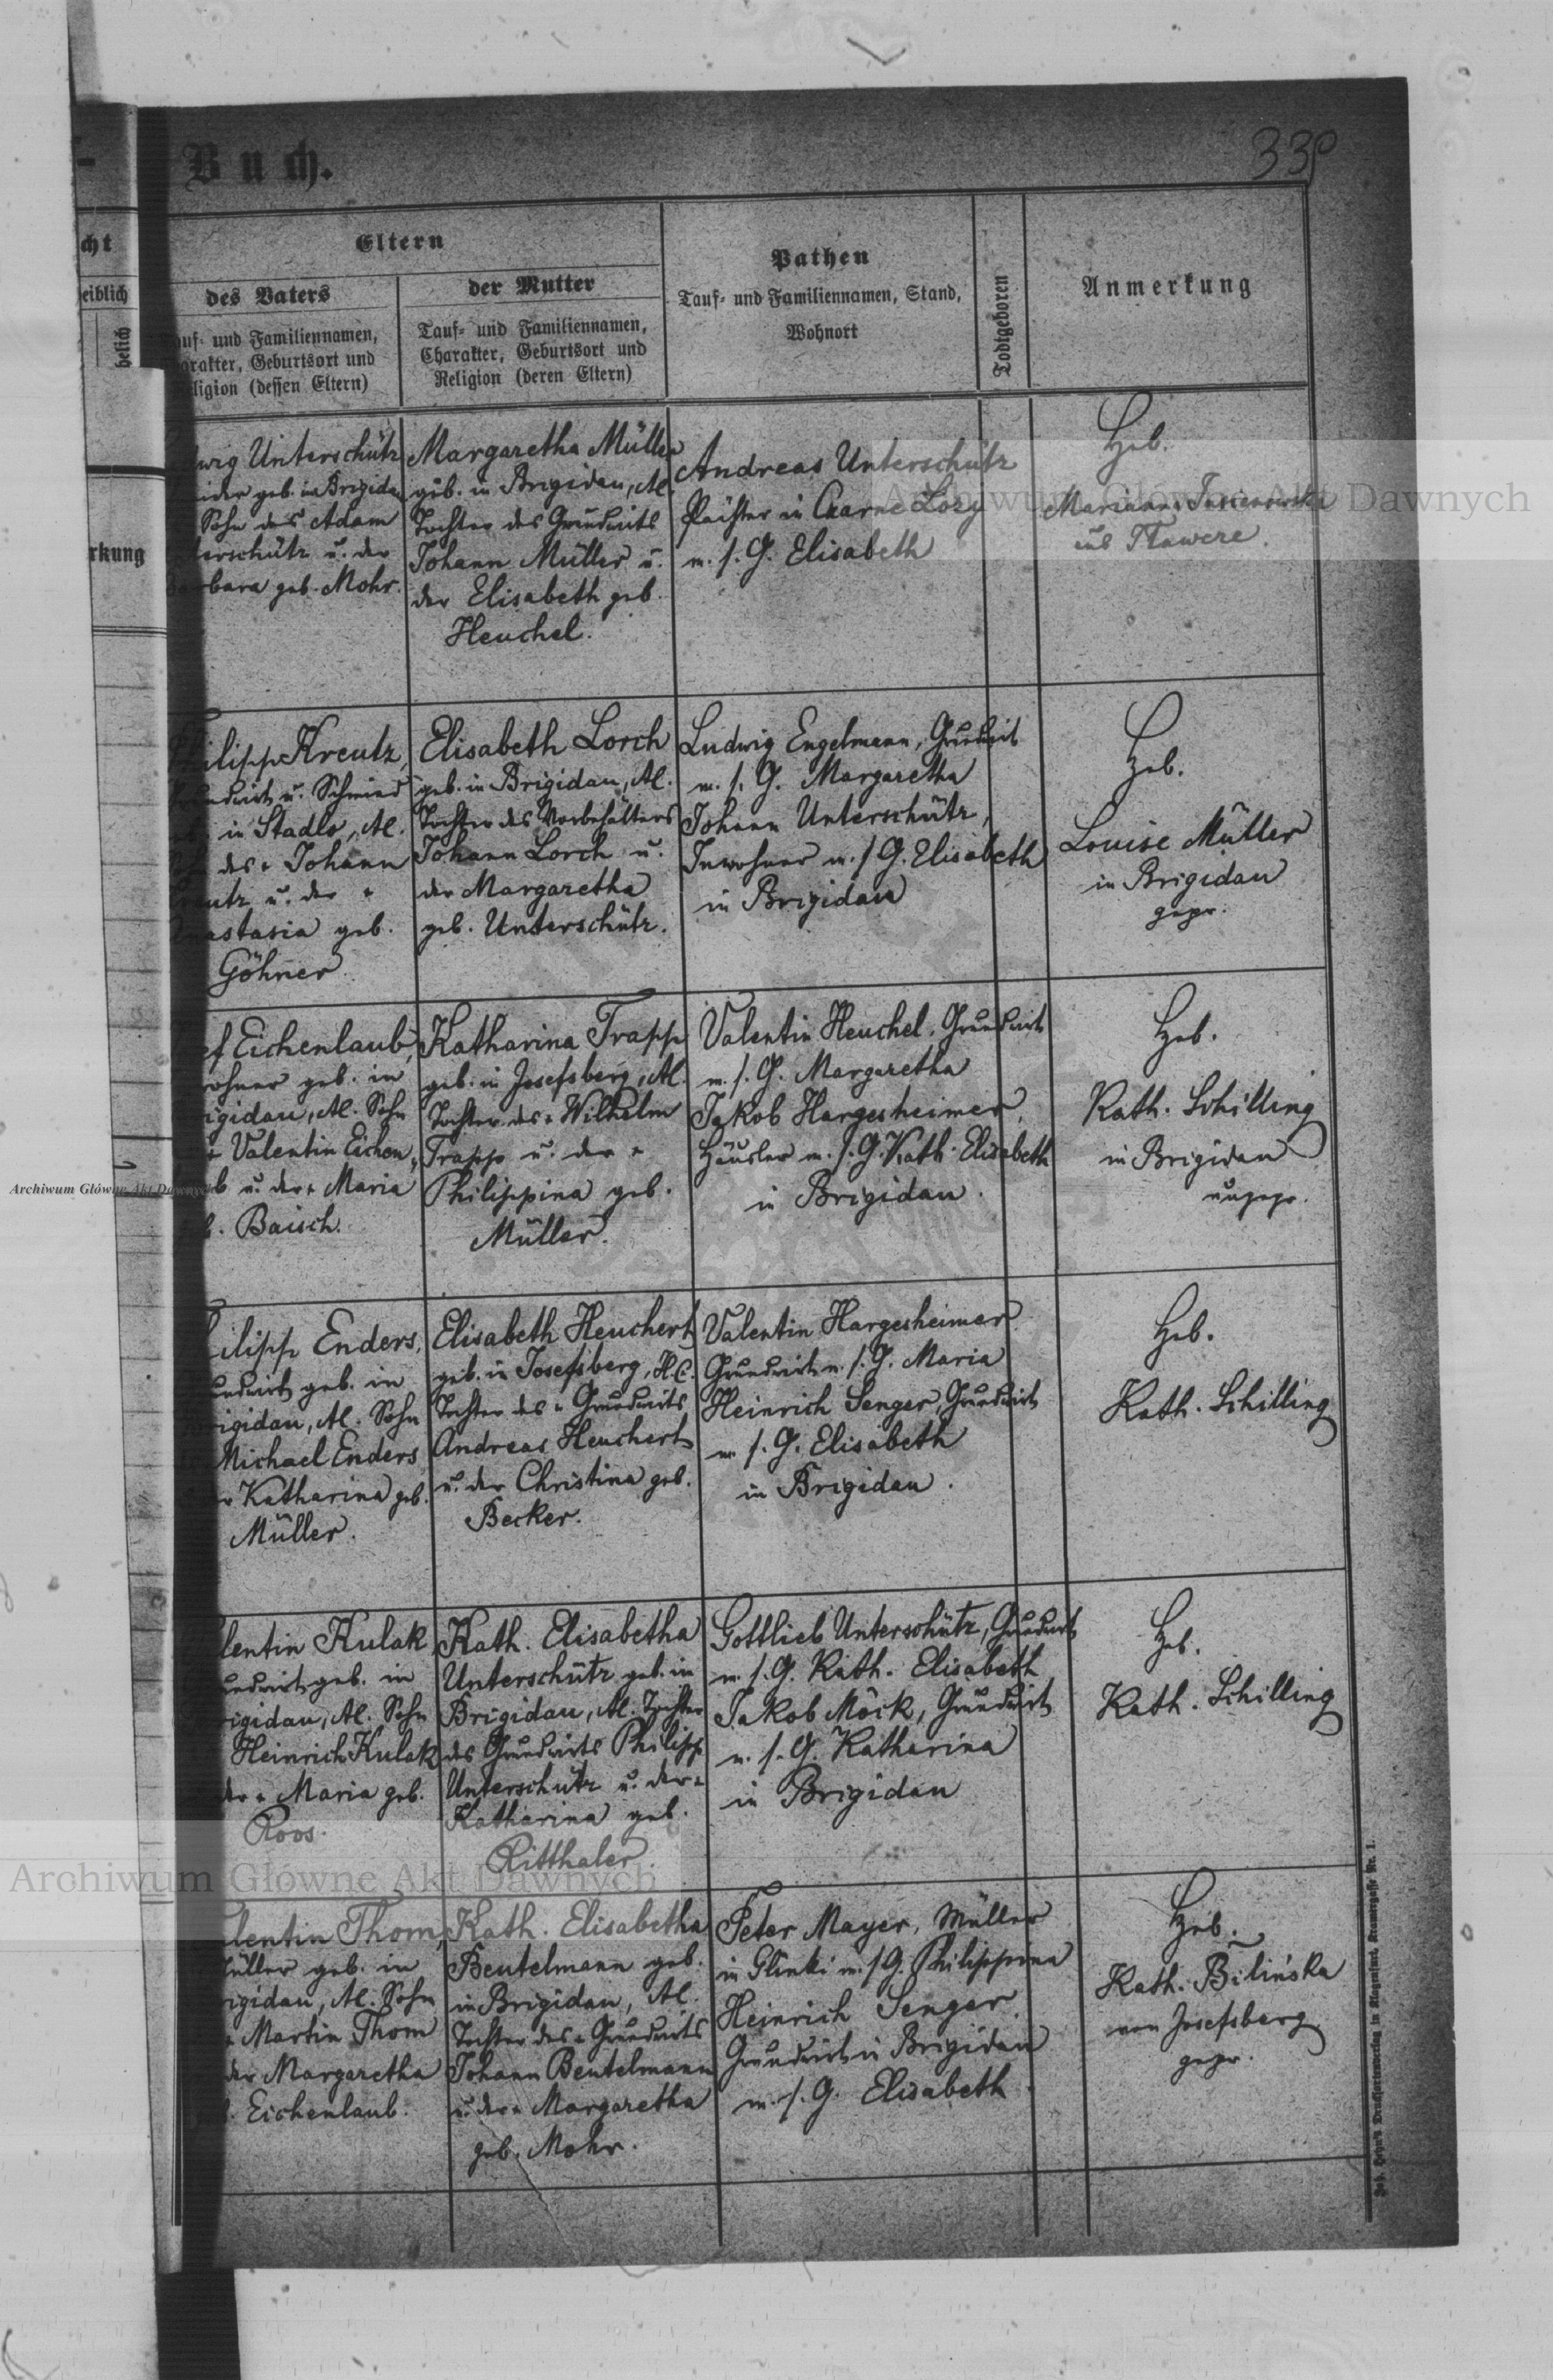 Buch.
330
cht
eiblich
helich
rkung
Eltern
des Vaters
auf- und Familiennamen,
arakter, Geburtsort und
ligion (dessen Eltern)
der Mutter
Tauf- und Familiennamen,
Charakter, Geburtsort und
Religion (deren Eltern)
Pathen
Tauf- und Familiennamen, Stand,
Wohnort
Todtgeboren
Anmerkung
wig Unterschütz
geb. in Brigidau
Sohn des Adam
terschütz u. der
Barbara geb. Mohr.
Margaretha Müller
geb. in Brigidau, Al.
Tochter des Grundwirts
Johann Müller u.
der Elisabeth geb.
Heuchel.
Andreas Unterschütz
Pächter in Czarne Lozy
m. s. G. Elisabeth
Heb.
Marianna
aus Tlawcre.
Philipp Kreutz,
Grundwirt u. Schmied
in Stadlo, Al.
des + Johann
eutz u. der +
nastasia geb.
Göhner.
Elisabeth Lorch
geb. in Brigidau, Al.
Tochter des Vorbehälters
Johann Lorch u.
der Margaretha
geb. Unterschütz.
Ludwig Engelmann, Grundwirt
m. s. G. Margaretha
Johann Unterschütz,
Inwohner m. s. G. Elisabeth
in Brigidau
Heb.
Louise Müller
in Brigidau
gepr.
ef Eichenlaub,
wohner geb. in
rigidau, Al. Sohn
+ Valentin Eichen„
b u. der + Maria
b. Baisch.
Katharina Trapp
geb. in Josefsberg, Al.
Tochter des + Wilhelm
Trapp u. der +
Philippina geb.
Müller.
Valentin Heuchel, Grundwirt
m. s. G. Margaretha
Jakob Hargesheimer,
Häusler m. s. G. Kath. Elisabeth
in Brigidau.
Heb.
Kath. Schilling
in Brigidau
ungepr.
ilipp Enders,
undwirt geb. in
rigidau, Al. Sohn
Michael Enders
Katharina geb.
Müller.
Elisabeth Heuchert
geb. in Josefsberg, H.C.
Tochter des + Grundwirts
Andreas Heuchert
u. der Christina geb.
Becker.
Valentin Hargesheimer
Grundwirt m. s. G. Maria
Heinrich Senger, Grundwirt
m. s. G. Elisabeth
in Brigidau.
Heb.
Kath. Schilling
lentin Kulak,
undwirt geb. in
rigidau, Al. Sohn
Heinrich Kulak
der + Maria geb.
Roos.
Kath. Elisabetha
Unterschütz geb. in
Brigidau, Al. Tochter
des Grundwirts Philipp
Unterschütz u. der +
Katharina geb.
Ritthaler.
Gottlieb Unterschütz, Grundwirt
m. s. G. Kath. Elisabeth
Jakob Möck, Grundwirt
m. s. G. Katharina
in Brigidau
Heb.
Kath. Schilling
lentin Thom,
Müller geb. in
rigidau, Al. Sohn
+ Martin Thom
der Margaretha
b. Eichenlaub.
Kath. Elisabetha
Beutelmann geb.
in Brigidau, Al.
Tochter des + Grundwirts
Johann Beutelmann
u. der + Margaretha
geb. Mohr.
Peter Mayer, Müller
in Glinki m. s. G. Philippina
Heinrich Senger,
Grundwirt in Brigidau
m. s. G. Elisabeth.
Heb.
Kath. Bilińska
von Josefsberg
gepr.
Archiwum Główne Akt Dawnych
Archiwum Główne Akt Dawnych
Archiwum Główne Akt Dawnych